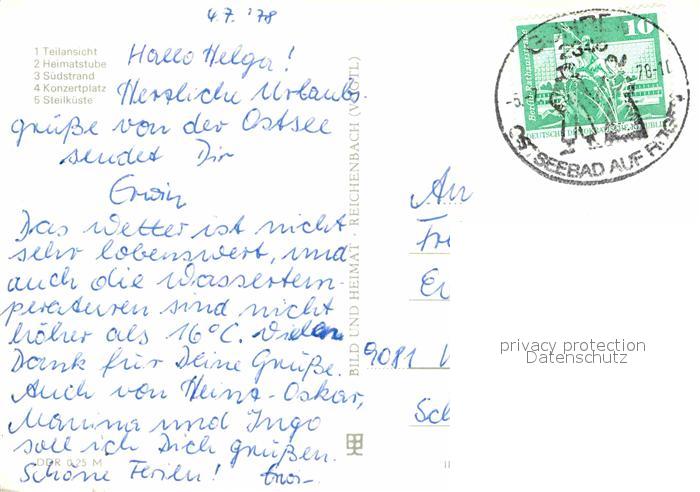 4.7.'78
1 Teilansicht
2 Heimatstube
3 Südstrand
4 Konzertplatz
5 Steilküste
Hallo Helga!
Herzliche Urlaubs-
grüße von der Ostsee
sendet Dir
Erwin
Das Wetter ist nicht
sehr lobenswert, und
auch die Wassertem-
peraturen sind nicht
höher als 16°C. Vielen
Dank für Deine Grüße.
Auch von Heinz-Oskar,
Manina und Ingo
soll ich Dich grüßen.
Schöne Ferien! Erwin
DDR 0,25 M
BILD UND HEIMAT · REICHENBACH (VOGTL)
10
Berlin, Rathausstraße
DEUTSCHE DEMOKRATISCHE REPUBLIK
2345
-78-11
OSTSEEBAD AUF RÜGEN
An
Fr
9081
privacy protection
Datenschutz